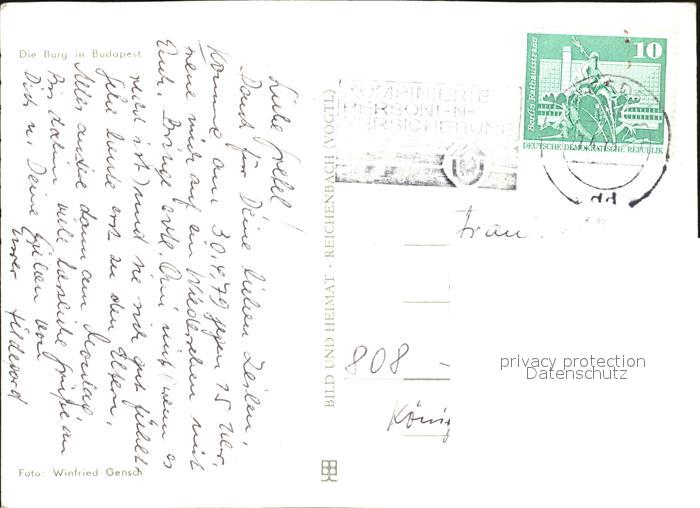 Die Burg in Budapest
Liebe Gretel!
Dank für Deine lieben Zeilen,
Komme am 30.4.79 gegen 15 Uhr,
freue mich auf ein Wiedersehen mit
Euch. Bringe evtl. Omi mit (wenn es
recht ist) und sie sich gut fühlt.
Fahre heute erst zu den Eltern.
Alles andere dann am Montag
Bis dahin viele herzliche Grüße an
Dich u. Deine Lieben von
Eurer Hildegard
Foto: Winfried Gensch
BILD UND HEIMAT · REICHENBACH (VOGTL)
KOMBINIERTE
PERSONEN-
VERSICHERUNG
Berlin, Rathausstraße
10
DEUTSCHE DEMOKRATISCHE REPUBLIK
Frau
808 -
König
privacy protection
Datenschutz